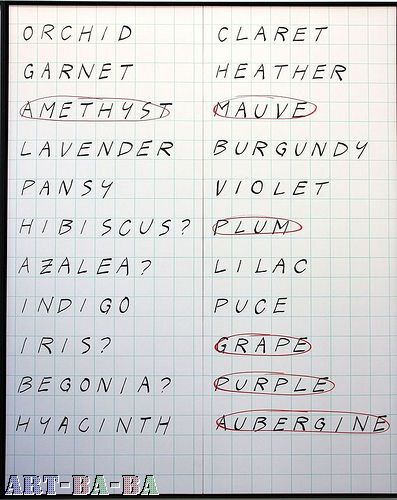 ORCHID
GARNET
AMETHYST
LAVENDER
PANSY
HIBISCUS?
AZALEA?
INDIGO
IRIS?
BEGONIA?
HYACINTH
CLARET
HEATHER
MAUVE
BURGUNDY
VIOLET
PLUM
LILAC
PUCE
GRAPE
PURPLE
AUBERGINE
ART-BA-BA